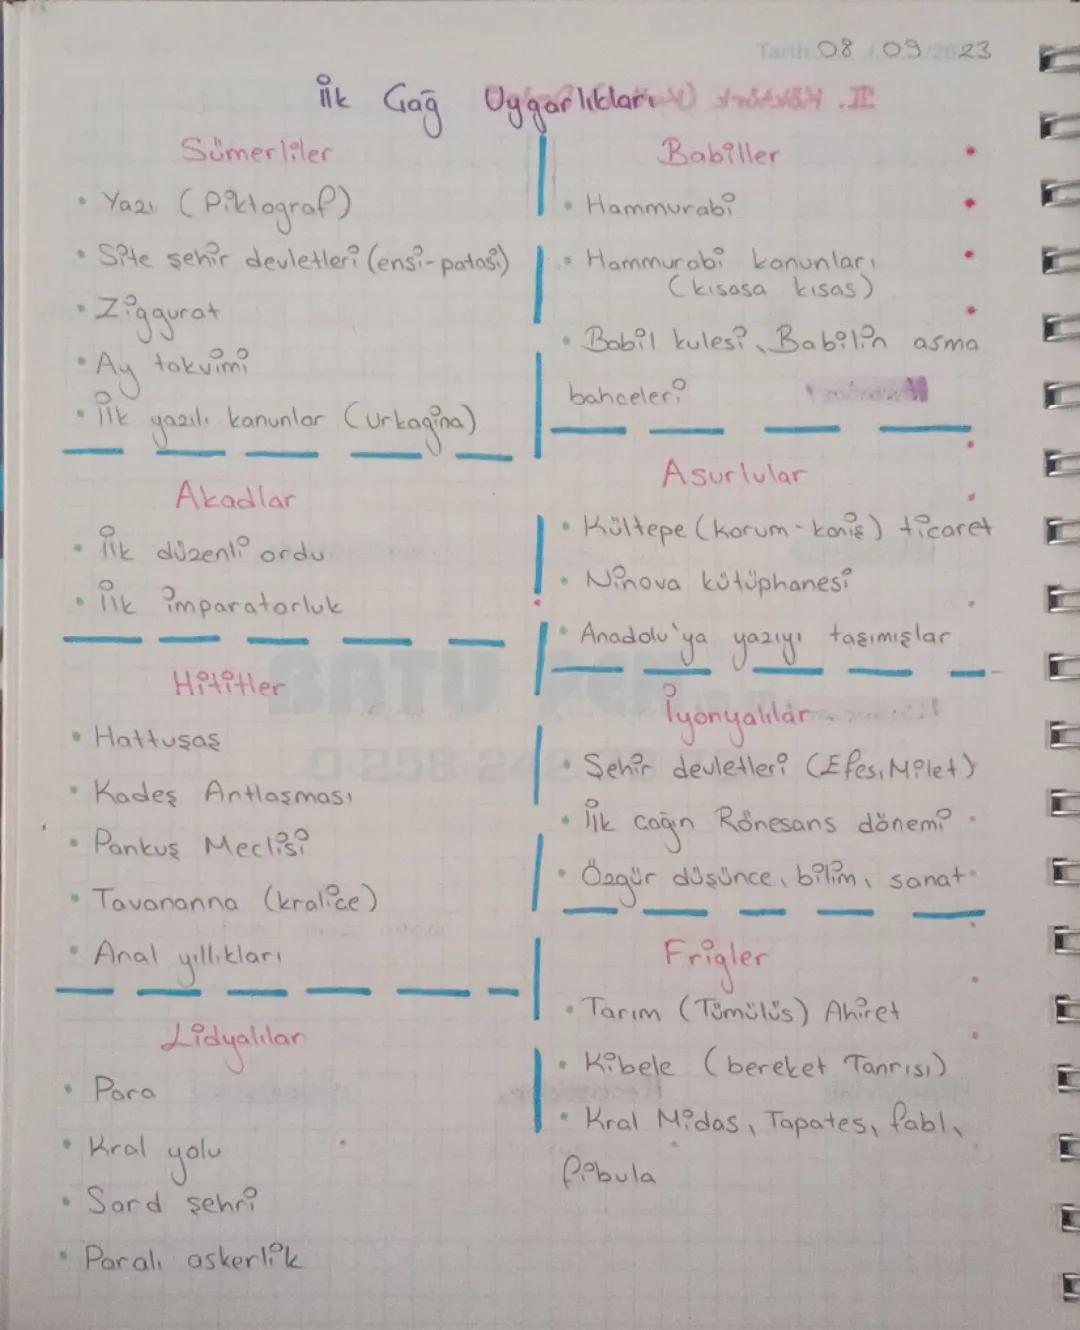 Tarih 08 09/2023
İlk Çağ Uygarlıkları
Sümerliler
• Yazı (Piktograf)
• Site şehir devletleri (ensi-patasi)
• Ziggurat
• Ay takvimi
• İlk yazılı kanunlar (urkagina)
Akadlar
• İlk düzenli ordu
• İlk imparatorluk
Hititler
• Hattuşaş
• Kadeş Antlaşması
• Pankuş Meclisi
• Tavananna (kraliçe)
• Anal yıllıkları
Lidyalılar
• Para
• Kral yolu
• Sard şehri
• Paralı askerlik
Babiller
• Hammurabi
• Hammurabi kanunları
(kısasa kısas)
• Babil kulesi, Babilin asma
bahceleri
Asurlular
• Kültepe (korum-kaniş) ticaret
• Ninova kütüphanesi
• Anadolu'ya yazıyı taşımışlar
İyonyalılar
• Şehir devletleri (Efes, Milet)
• İlk çağın Rönesans dönemi
• Özgür düşünce, bilim, sanat
Frigler
• Tarım (Tümülüs) Ahiret
• Kibele (bereket Tanrısı)
• Kral Midas, Tapates, fabl,
fibula